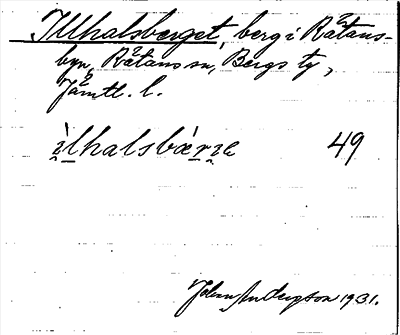 Illhalsberget, berg i Rätans-
byn, Rätans sn, Bergs tg,
Jämtl. l.
ìlhalsbǽrɪe 49
Johan Anderson 1931.